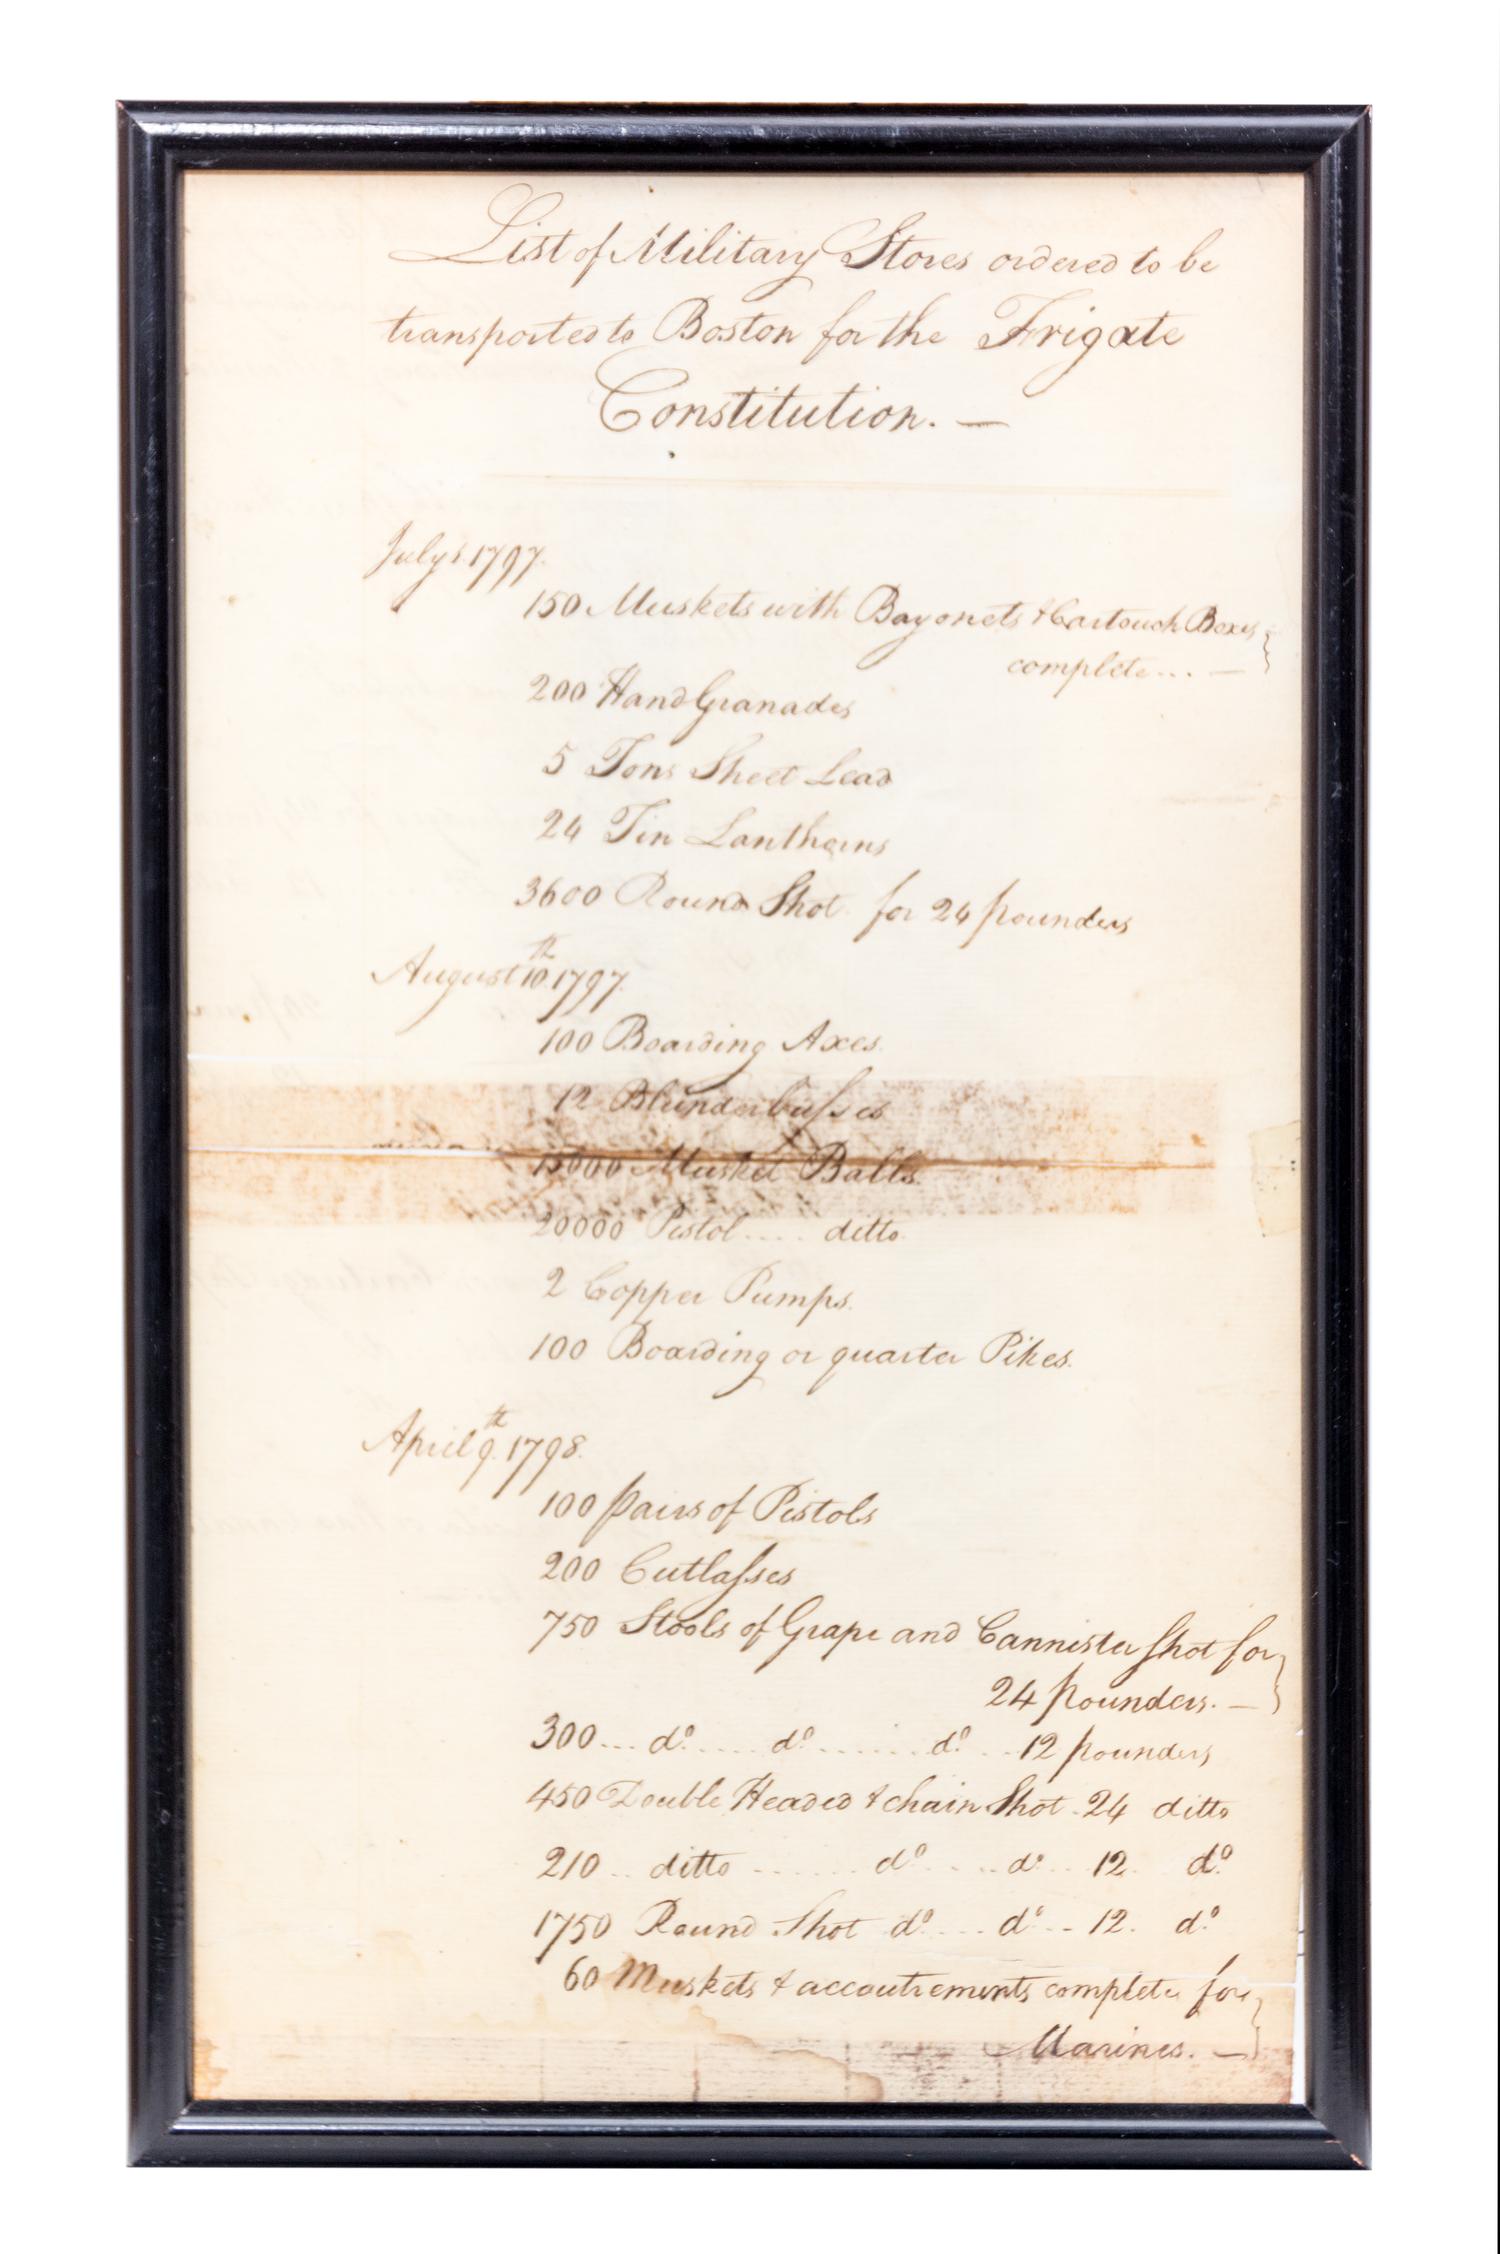 List of Military Stores ordered to be
transported to Boston for the Frigate
Constitution. —
July 1. 1797.
150 Muskets with Bayonets & Cartouch Boxes
complete... —
200 Hand Granades
5 Tons Sheet Lead
24 Tin Lantherns
3600 Round Shot for 24 pounders
August 10th. 1797.
100 Boarding Axes.
12 Blunderbusses
15000 Musket Balls.
20000 Pistol.... ditto.
2 Copper Pumps.
100 Boarding or quarter Pikes.
April 9th. 1798.
100 pairs of Pistols
200 Cutlasses
750 Stools of Grape and Cannister Shot for
24 pounders. —
300... do..... do....... do... 12 pounders
450 Double Headed & chain Shot . 24 ditto
210 .. ditto ...... do .... do .. 12. do.
1750 Round Shot do.... do... 12. do.
60 Muskets & accoutrements complete for
Marines. —